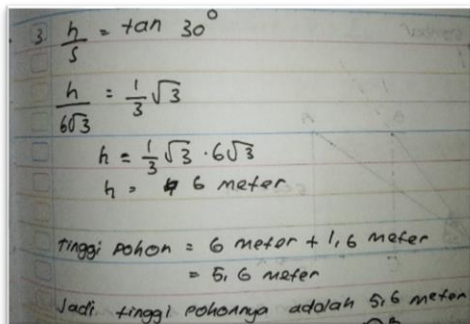 3. h/s = tan 30°
h/6√3 = 1/3 √3
h = 1/3 √3 · 6√3
h = 6 meter
tinggi pohon = 6 meter + 1,6 meter
= 5,6 meter
Jadi tinggi pohonnya adalah 5,6 meter